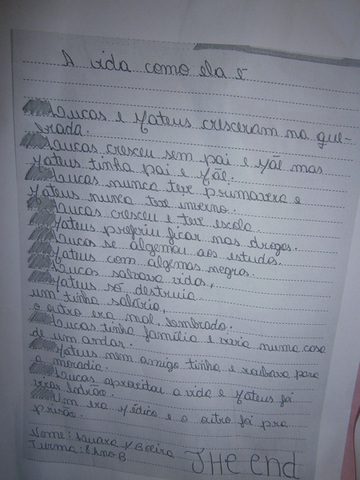 A vida como ela é
Lucas e Mateus cresceram na que-
brada.
Lucas cresceu sem pai e mãe mas
Mateus tinha pai e mãe.
Lucas nunca teve primavera e
Mateus nunca teve inverno.
Lucas cresceu e teve escola.
Mateus preferiu ficar nas drogas.
Lucas se algemou aos estudos.
Mateus com algemas negras.
Lucas salvava vidas,
Mateus só destruia
um tinha salário,
o outro era mal lembrado.
Lucas tinha família e vivia numa casa
de um andar.
Mateus nem amigo tinha e roubava para
a moradia.
Lucas aproveitou a vida e Mateus foi
ladrão.
Um era Médico e o outro foi pra
prisão.
Nome:
Turma: B
THe end